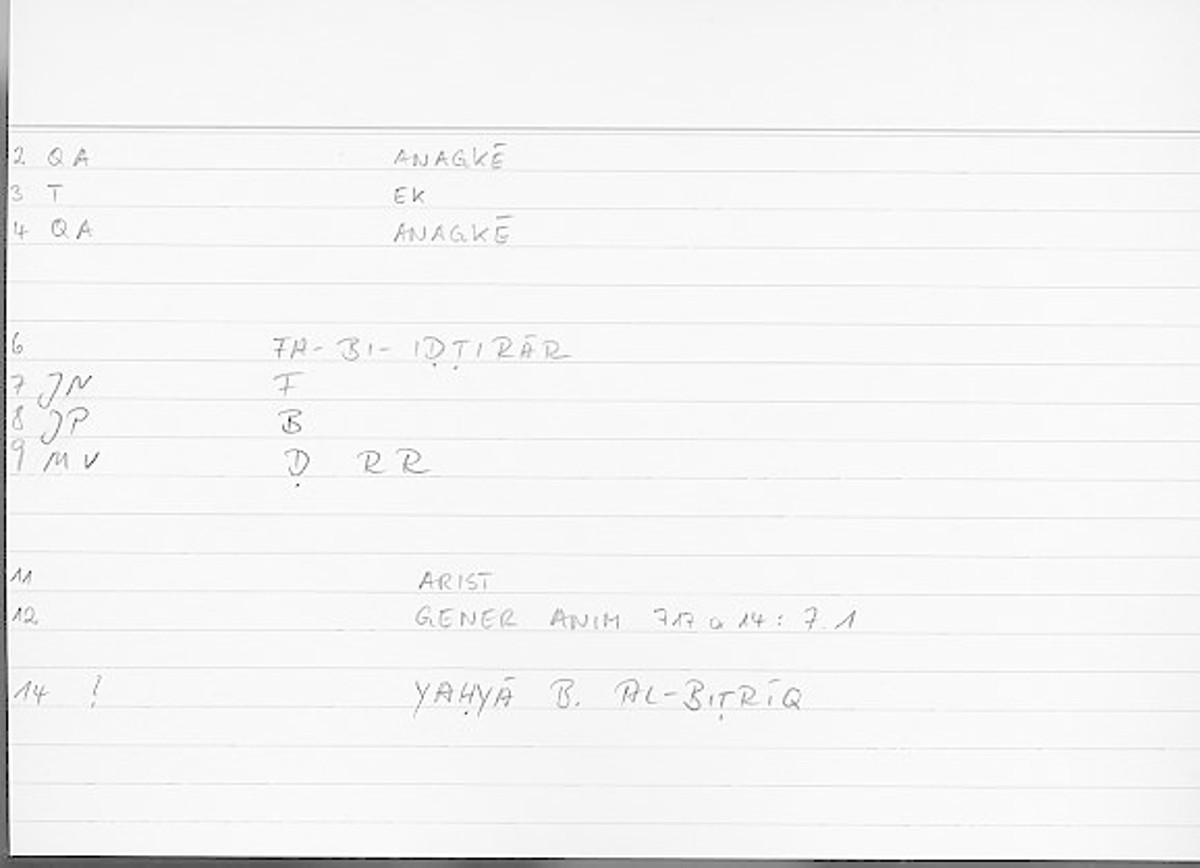 2 QA ANAGKĒ
3 T EK
4 QA ANAGKĒ
6 FA-BI-IḌṬIRĀR
7 JN F
8 JP B
9 MV Ḍ RR
11 ARIST
12 GENER ANIM 717 a 14: 7.1
14 ! YAḤYĀ B. AL-BIṬRĪQ